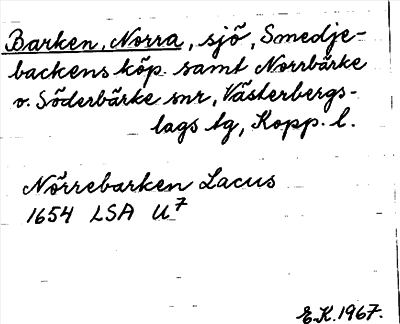 Barken, Norra, sjö, Smedje-
backens köp. samt Norrbärke
o. Söderbärke snr, Västerbergs-
lags tg, Kopp. l.
Nörrebarken Lacus
1654 LSA U7
E.K. 1967.